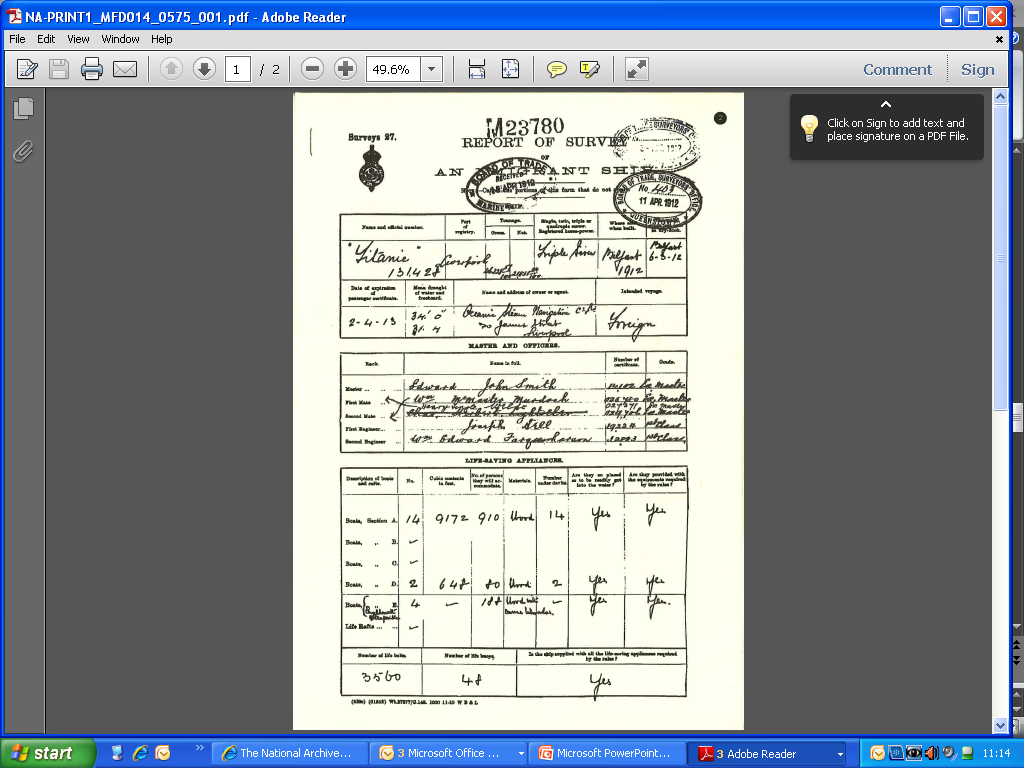 NA-PRINT1_MFD014_0575_001.pdf - Adobe Reader
File Edit View Window Help
1 / 2 49.6% Comment Sign
Click on Sign to add text and
place signature on a PDF File.
M23780
Surveys 27.
REPORT OF SURVEY
OF
AN EMIGRANT SHIP
BOARD OF TRADE
RECEIVED
APR 1912
BOARD OF TRADE, SURVEYORS OFFICE
11 APR. 1912
QUEENSTOWN
Name and official number. Port of registry. Tonnage. Gross. Net. Single, twin, triple or quadruple screw. Registered horse-power. Where and when built.
"Titanic" Liverpool Triple Screw Belfast Belfast
131428 1912 6-3-12
Date of expiration of passenger certificate. Mean draught of water and freeboard. Name and address of owner or agent. Intended voyage.
2-4-13 34' 0" Oceanic Steam Navigation Co Foreign
James Street
Liverpool
MASTER AND OFFICERS.
Rank. Name in full. Number of certificate. Grade.
Master Edward John Smith Ex Master
First Mate Wm McMaster Murdoch Ex Master
Second Mate Ex Master
First Engineer Joseph Bell 1st Class
Second Engineer Wm Edward Farquharson 1st Class
LIFE-SAVING APPLIANCES.
Description of boats and rafts. No. Cubic contents in feet. No. of persons they will accommodate. Materials. Number under davits. Are they so placed as to be readily got into the water? Are they provided with the equipments required by the rules?
Boats, Section A. 14 9172 910 Wood 14 Yes Yes
Boats, „ B.
Boats, „ C.
Boats, „ D. 2 648 80 Wood 2 Yes Yes
Boats, E. 4 188 Wood with Yes Yes.
Life Rafts
Number of life belts. Number of life buoys. Is the ship supplied with all the life-saving appliances required by the rules?
3560 48 Yes
start The National Archive... 3 Microsoft Office ... Microsoft PowerPoint... 3 Adobe Reader 11:14